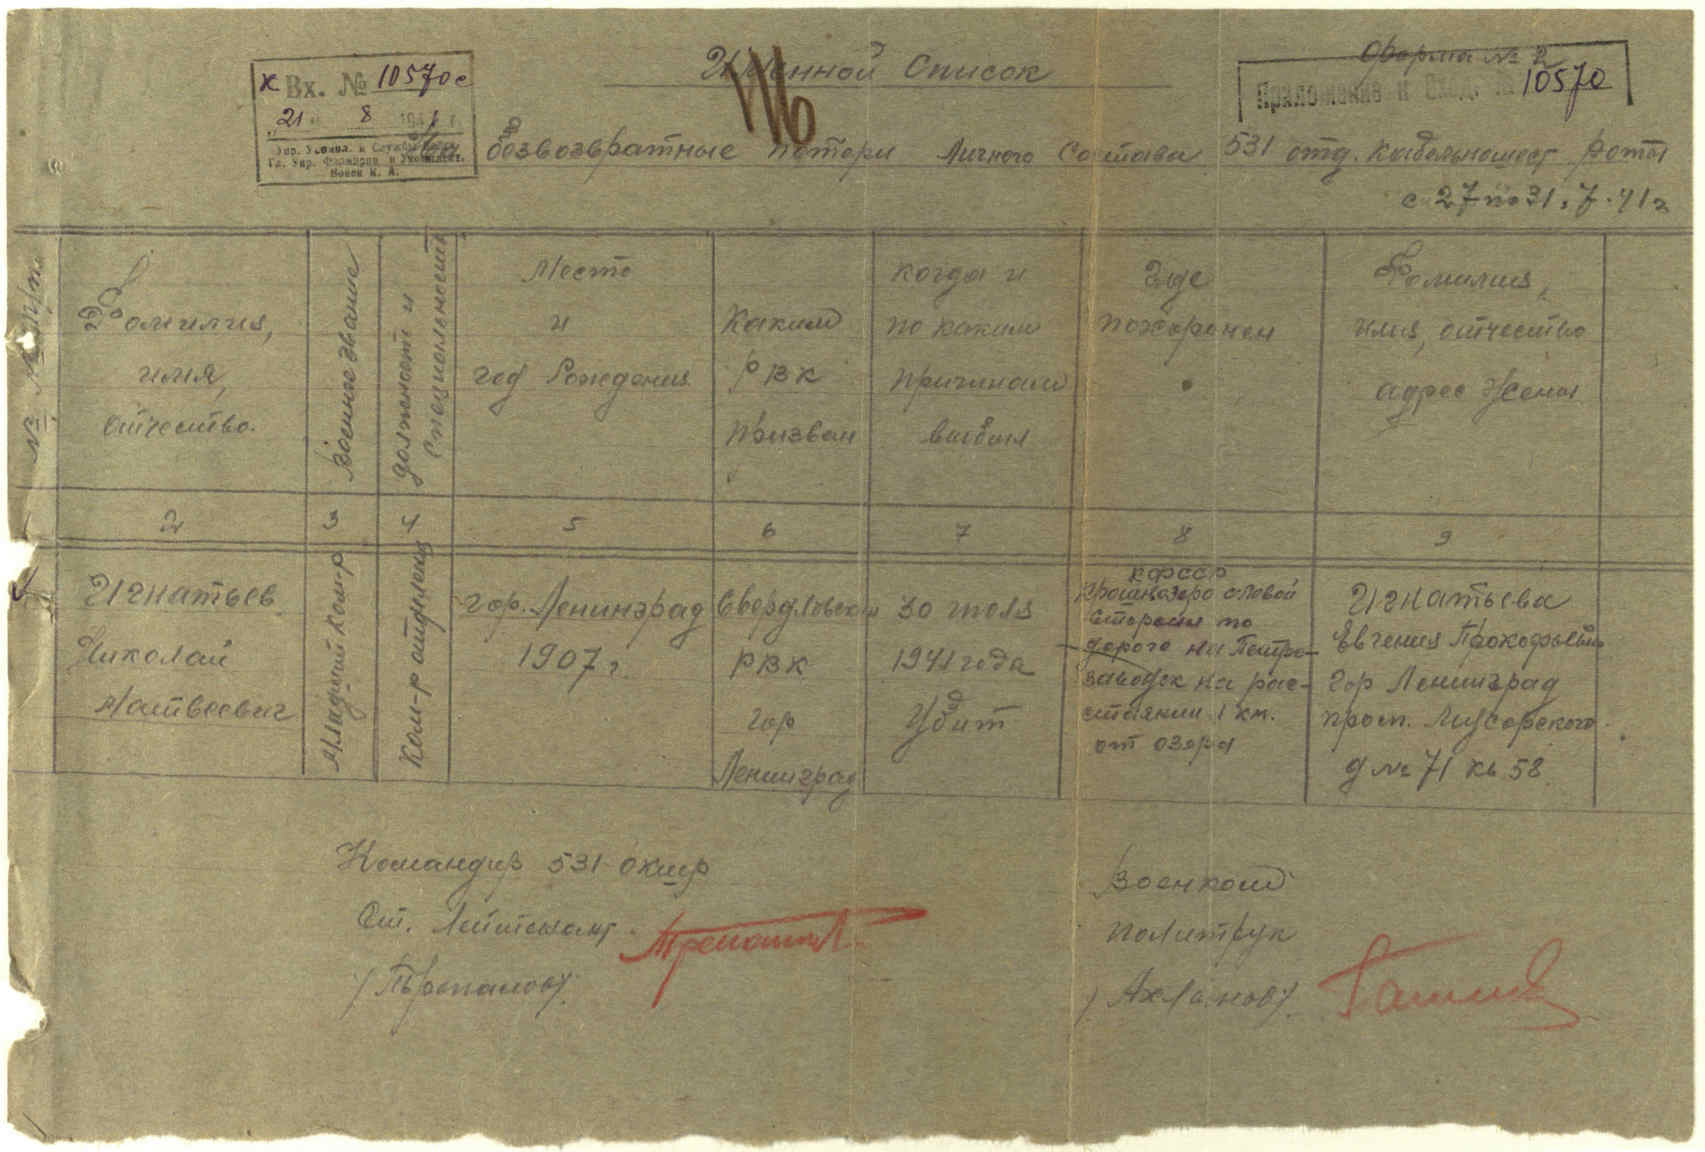 Вх. № 10570с
21 8 1941 г.
Упр. Укомпл. и Службы Войск
Гл. Упр. Формиров. и Укомплект.
Войск К. А.
Именной Список
Форма № 2
Приложение к Вход. № 10570
безвозвратные потери личного Состава 531 отд. кабельношест. Роты
с 27 по 31.7.41г
№№ п/п
Фамилия,
имя,
отчество.
Военное звание
должность и
специальность
Место
и
год Рождения
Каким
РВК
призван
когда и
по каким
причинам
выбыл
Где
похоронен
Фамилия,
имя, отчество
адрес жены
2 3 4 5 6 7 8 9
Игнатьев
Николай
Матвеевич
Младший ком-р
Ком-р отделения
гор. Ленинград
1907 г.
Свердловским
РВК
гор
Ленинград
30 июля
1941 года
Убит
КФССР
Крошнозеро с левой
стороны по
дороге на Петро-
заводск на рас-
стоянии 1 км.
от озера
Игнатьева
Евгения Прокофьевна
гор Ленинград
просп. Мусоргского
д № 71 кв 58
Командир 531 окшр
Ст. Лейтенант
Военком
политрук